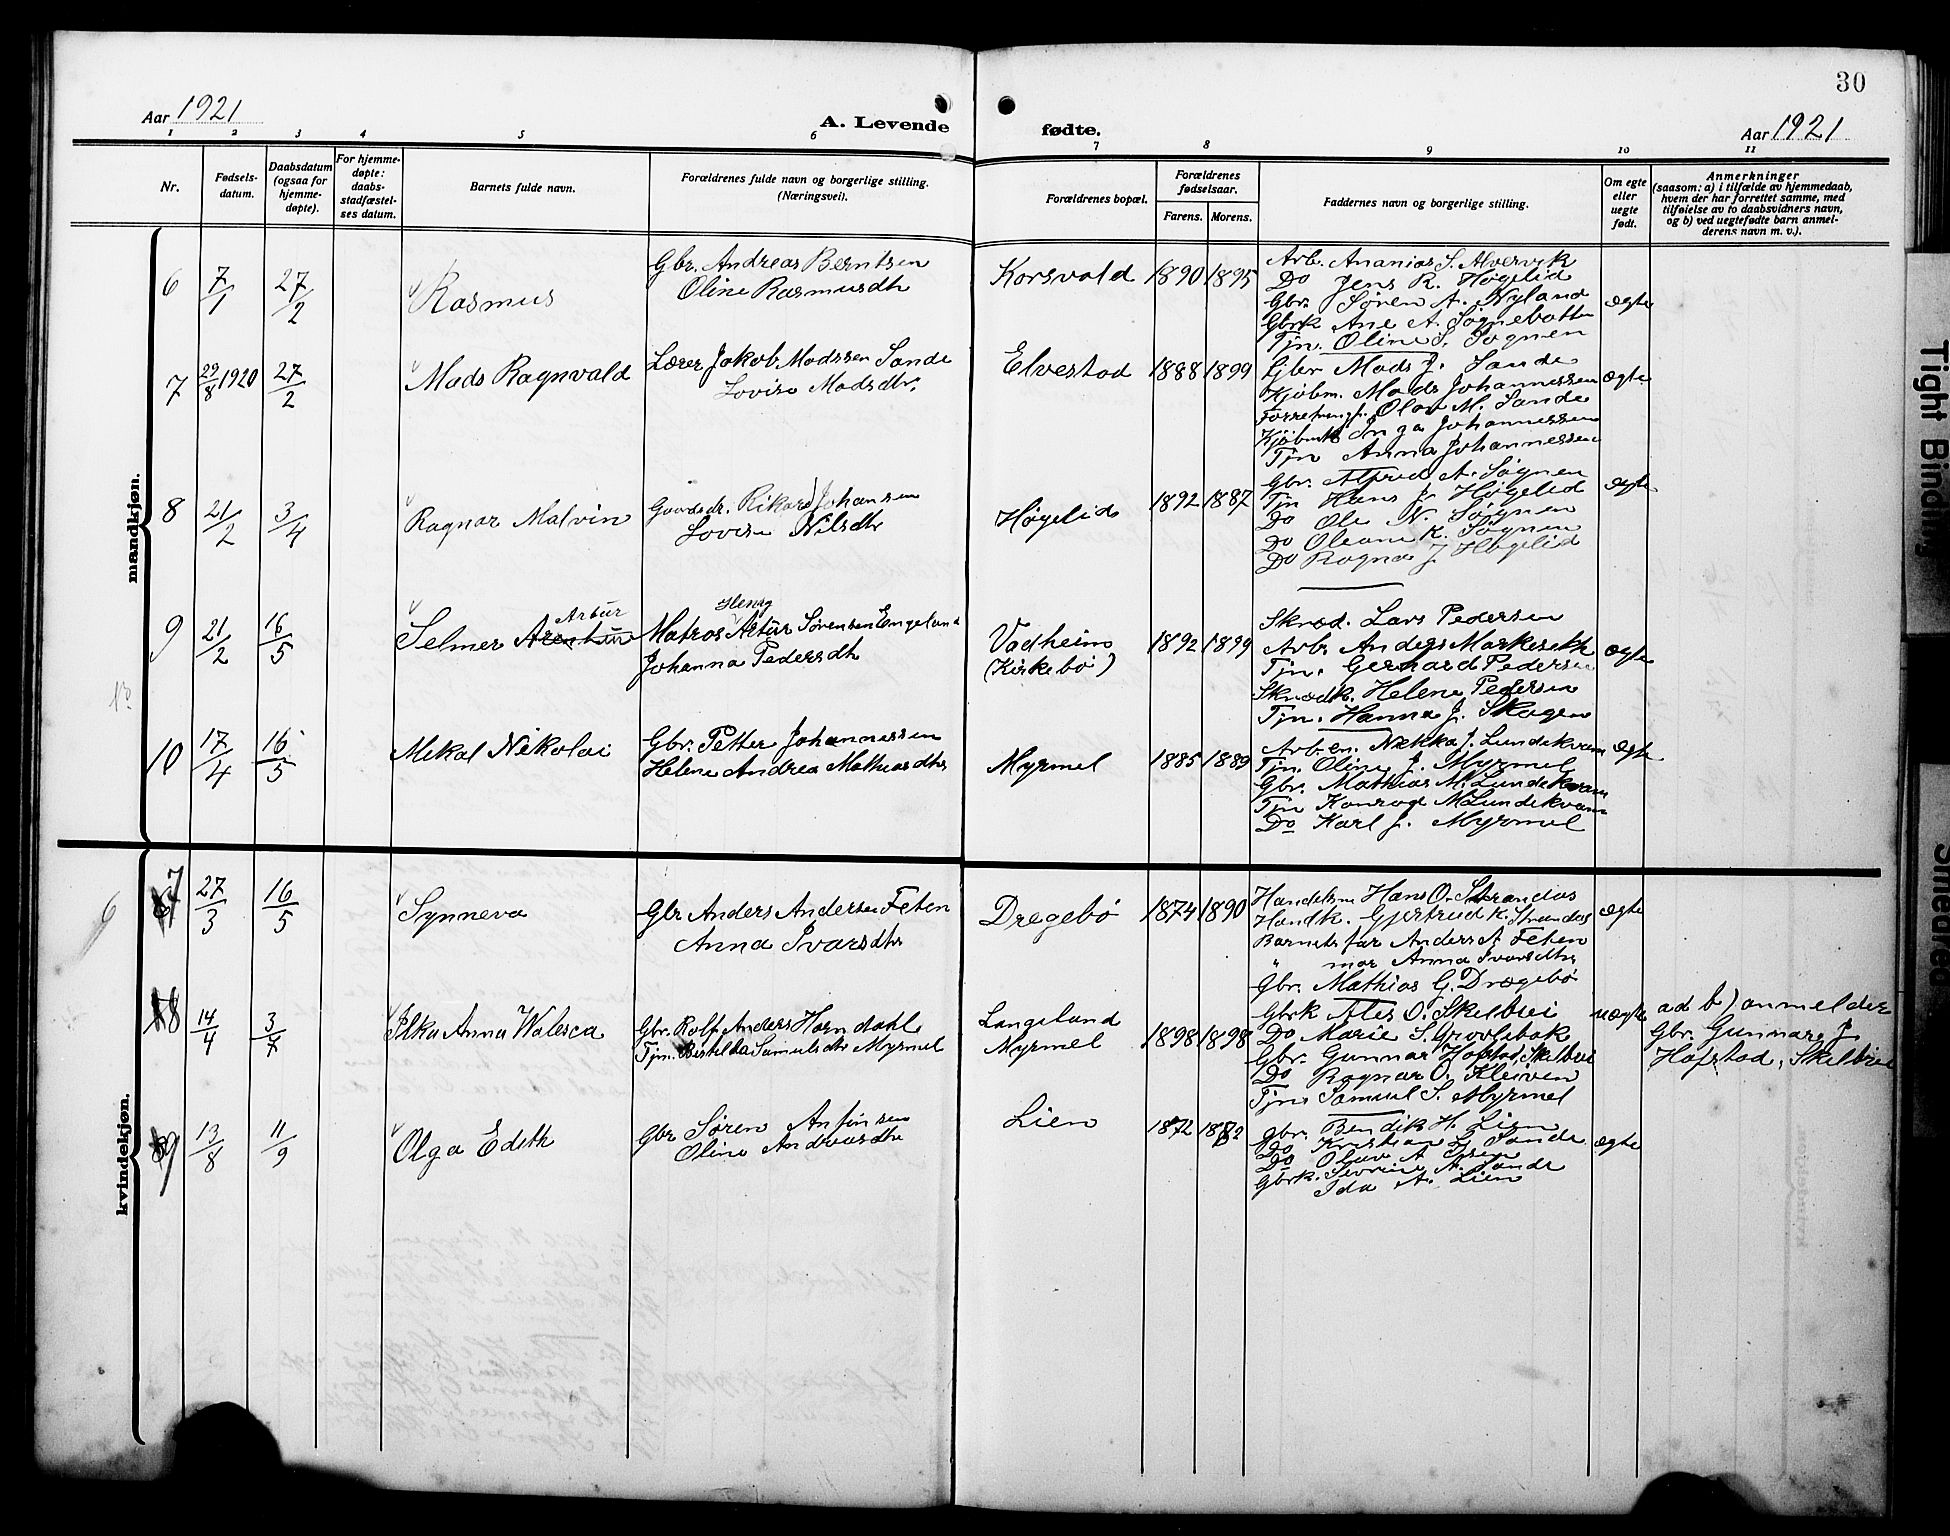 30
Aar 1921
A. Levende fødte.
Aar 1921
1 2 3 4 5 6 7 8 9 10 11
Nr.
Fødsels-
datum.
Daabsdatum
(ogsaa for
hjemme-
døpte).
For hjemme-
døpte:
daabs-
stadfæstel-
ses datum.
Barnets fulde navn.
Forældrenes fulde navn og borgerlige stilling.
(Næringsvei).
Forældrenes bopæl.
Forældrenes
fødselsaar.
Farens. Morens.
Faddernes navn og borgerlige stilling.
Om egte
eller
uegte
født.
Anmerkninger
(saasom: a) i tilfælde av hjemmedaab,
hvem der har forrettet samme, med
tilføielse av to daabsvidners navn,
og b) ved uegtefødte barn anmel-
derens navn m. v.).
mandkjøn.
6 7/1 27/2 Rasmus
Gbr. Andreas Berntsen
Oline Rasmusdtr
Korsvold 1890 1895
Arb. Ananias S. Alvervik
Do Jens R. Høgelid
Gbr. Søren A. Nyland
Gbrk Ane A. Søgnebotten
Tjn. Oline S. Søgnen
ægte
7 29/8 1920 27/2 Mads Ragnvald
Lærer Jakob Madssen Sande
Lovise Madsdtr.
Elvestad 1888 1899
Gbr Mads J. Sande
Kjøbm. Mads Johannessen
Olav M. Sande
Inga Johannessen
Tjn Anna Johannessen
ægte
8 21/2 3/4 Ragnar Malvin
Gaardsdr. Rikard Johansen
Lovise Nilsdtr
Høgelid 1892 1887
Gbr. Alfred A. Søgnen
Tjn Hans J. Høgelid
Do Ole N. Søgnen
Do Oleane K. Søgnen
Do Ragna J. Høgelid
ægte
9 21/2 16/5 Selmer Artur
Henry
Matros Artur Sørensen Engeland
Johanna Pedersdtr
Vadheim
(Kirkebø)
1892 1899
Skræd. Lars Pedersen
Arb. Anders
Tjn. Gerhard Pedersen
Skrædk. Helene Pedersen
Tjn. Hanna J. Skogen
ægte
10 17/4 16/5 Mikal Nikolai
Gbr. Petter Johannessen
Helene Andrea Mathiasdtr
Myrmel 1885 1889
Arb. en. J. Lundekvam
Tjn. Oline J. Myrmel
Gbr. Mathias M. Lundekvam
Tjn Konrad M Lundekvam
Do Karl J. Myrmel
ægte
kvindekjøn.
6
7 27/3 16/5 Synneva
Gbr Anders Andersen Feten
Anna Ivarsdtr
Dregebø 1874 1890
Handelsm Hans O. Strandos
Handk. Gjertrud K. Strandos
Barnets far Anders A Feten
" mor Anna Ivarsdtr
Gbr. Mathias G. Drægebø
ægte
8 14/4 3/7 Ilka Anna Walesca
Gbr. Rolf Anders Horndahl
Tjn. Bertilda Samulsdtr Myrmel
Langeland
Myrmel
1898 1898
Gbrk O. Skelbrei
Do Marie S.
Gbr. Gunnar J Hofstad, Skelbrei
Do Ragnar O. Kleiven
Tjn. Samuel S. Myrmel
uægte
ad b) anmelder
Gbr. Gunnar J.
Hofstad, Skelbrei
9 13/8 11/9 Olga Edith
Gbr Søren Anfinsen
Oline Andreasdtr
Lien 1872 1882
Gbr. Bendik H. Lien
Do Kristian L. Sande
Do Olav A
Gbrk. Severine A. Sande
Ida A. Lien
ægte
Tight Binding